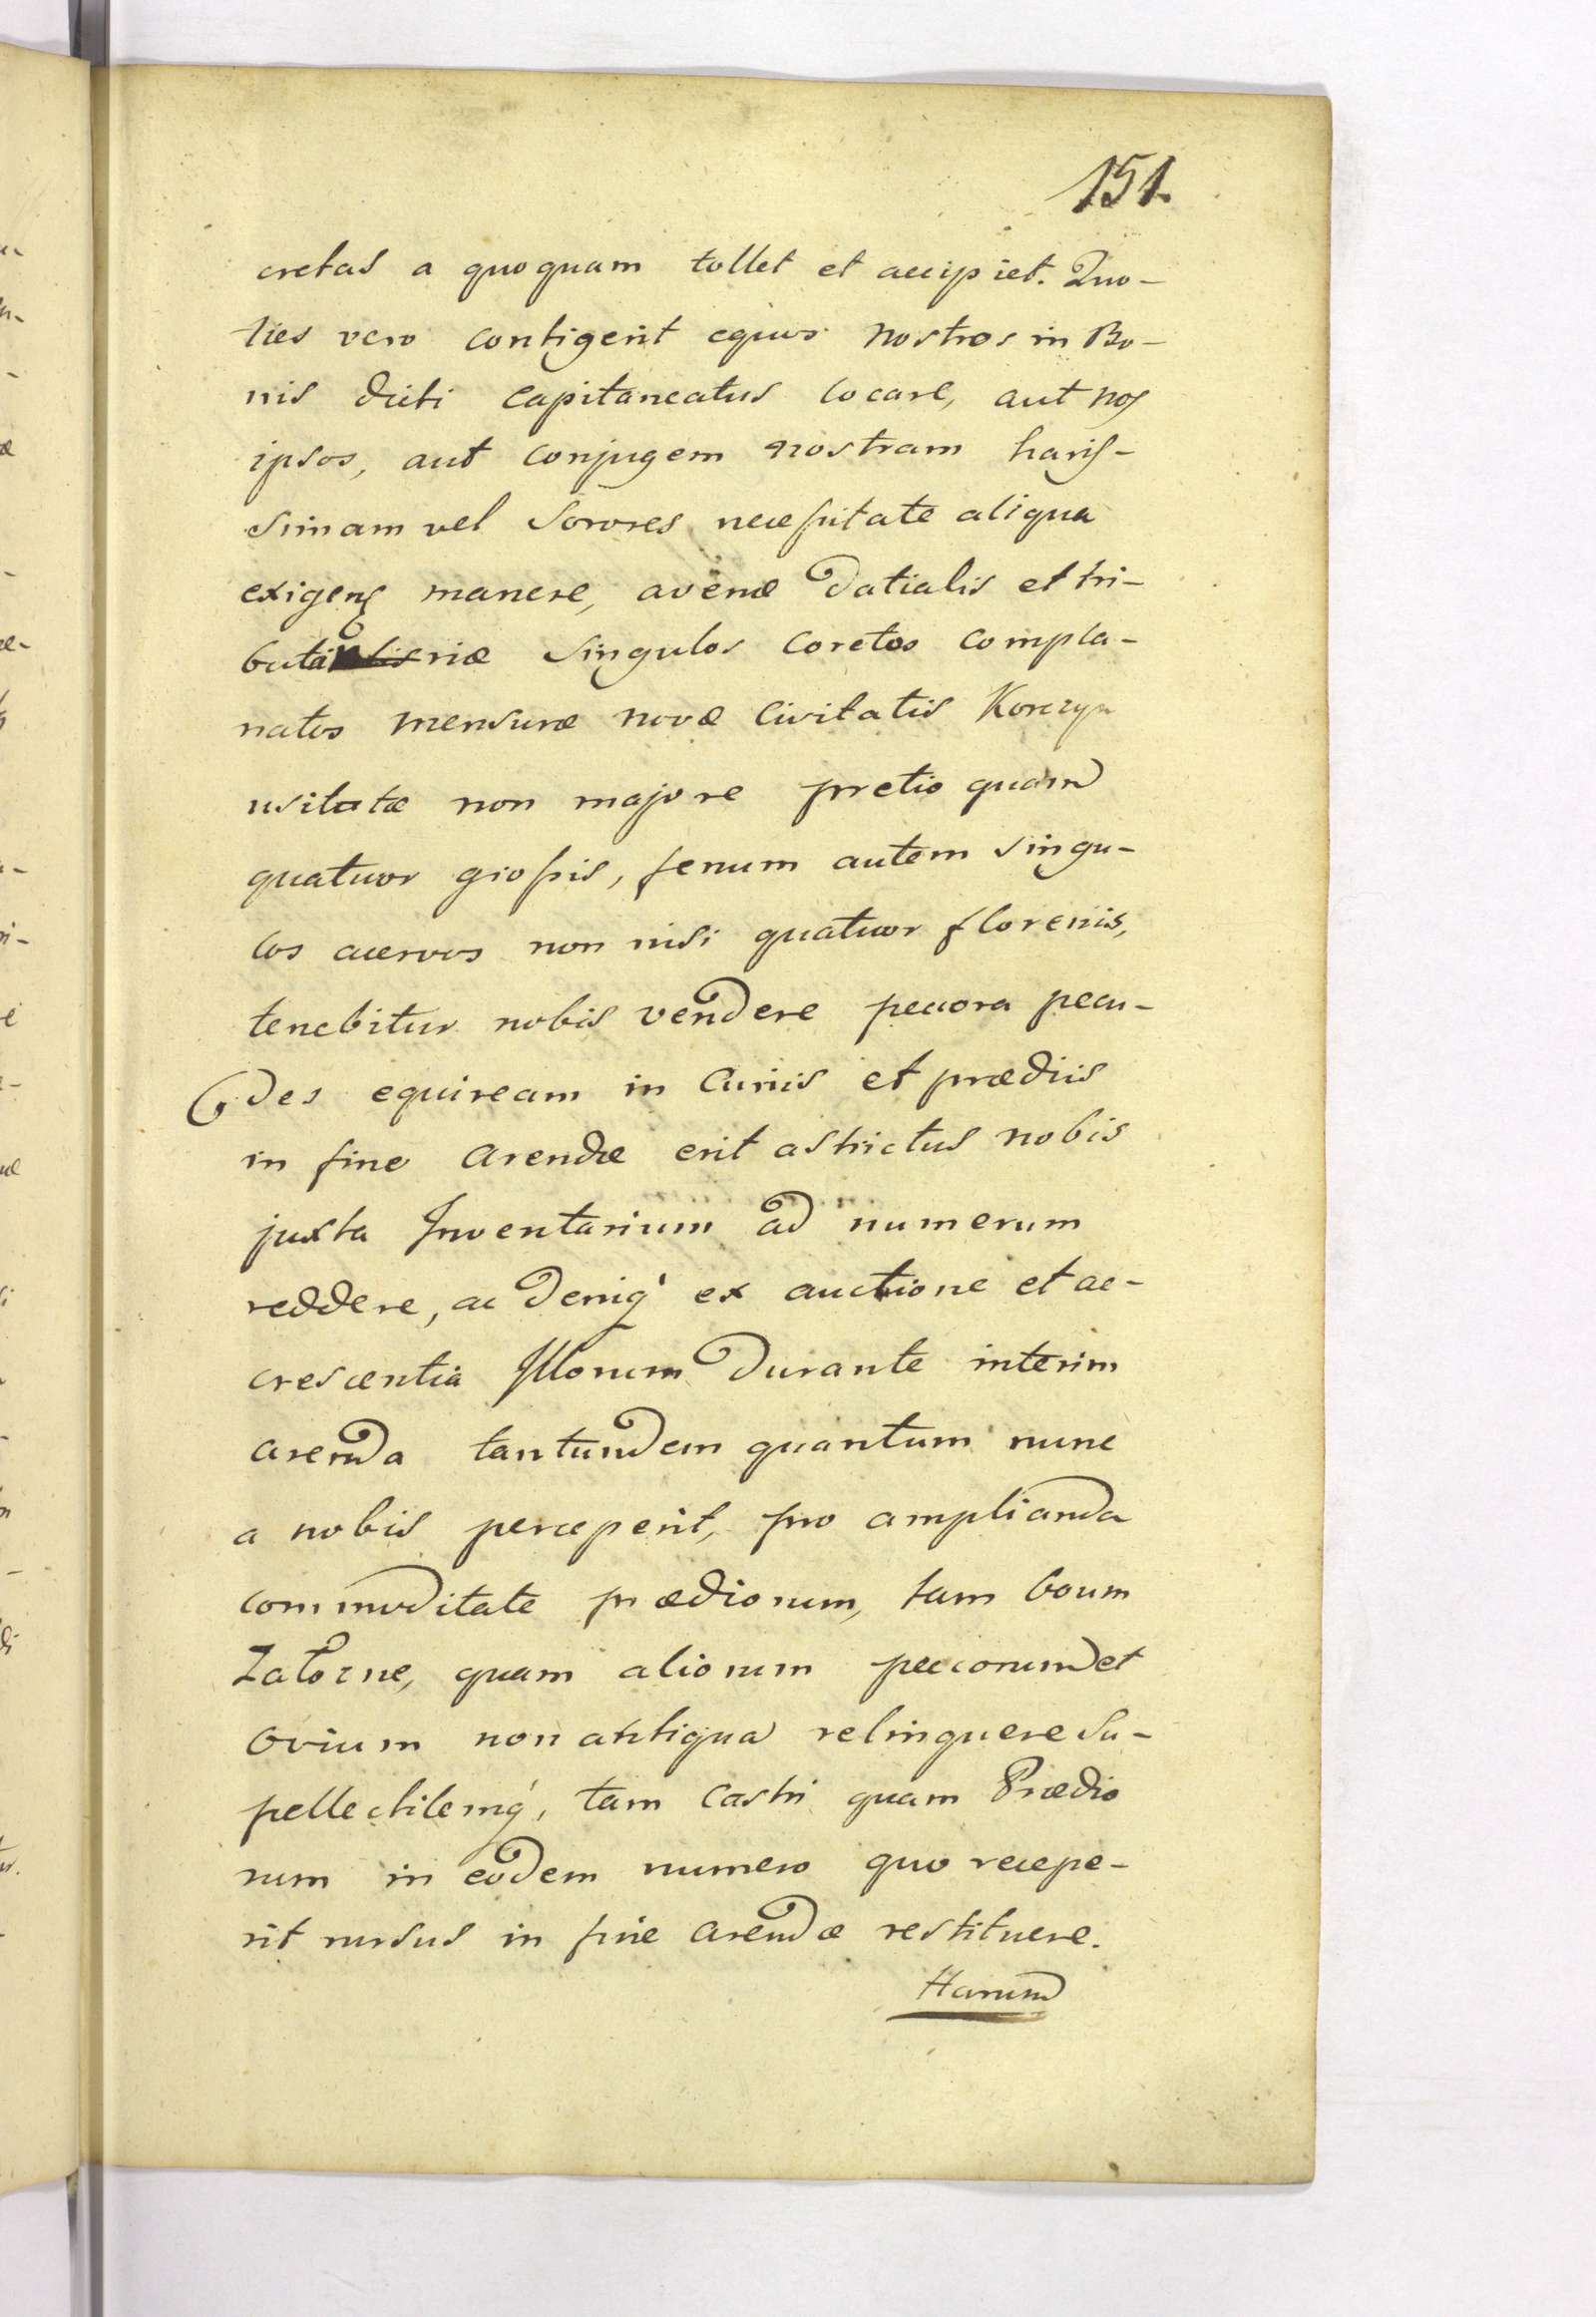 151.
cretas a quoquam tollet et accipiet. Quo-
ties vero contigerit equos nostros in Bo-
nis dicti Capitaneatus locare, aut nos
ipsos, aut conjugem nostram haris-
simam vel Sorores necessitate aliqua
exigens manere, avenæ datialis et tri-
butariæ singulos coretos compla-
natos mensuræ novæ Civitatis Korczyn
usitatæ non majore pretio quam
quatuor grossis, fenum autem singu-
los acervos non nisi quatuor florenis,
tenebitur nobis vendere peccora pecu-
des equiream in Curiis et prædiis
in fine Arendæ erit astrictus nobis
juxta Inventarium ad numerum
reddere, ac deniq' ex auctione et ac-
crescentia Illorum durante interim
arenda tantundem quantum nunc
a nobis perceperit, pro amplianda
commoditate prædiorum, tam boum
Zatorne, quam aliorum peccorum et
ovium non antiqua relinquere Su-
pellectilemq', tam Castri quam Prædio
rum in eodem numero quo recepe-
rit rursus in fine Arendæ restituere.
Harum